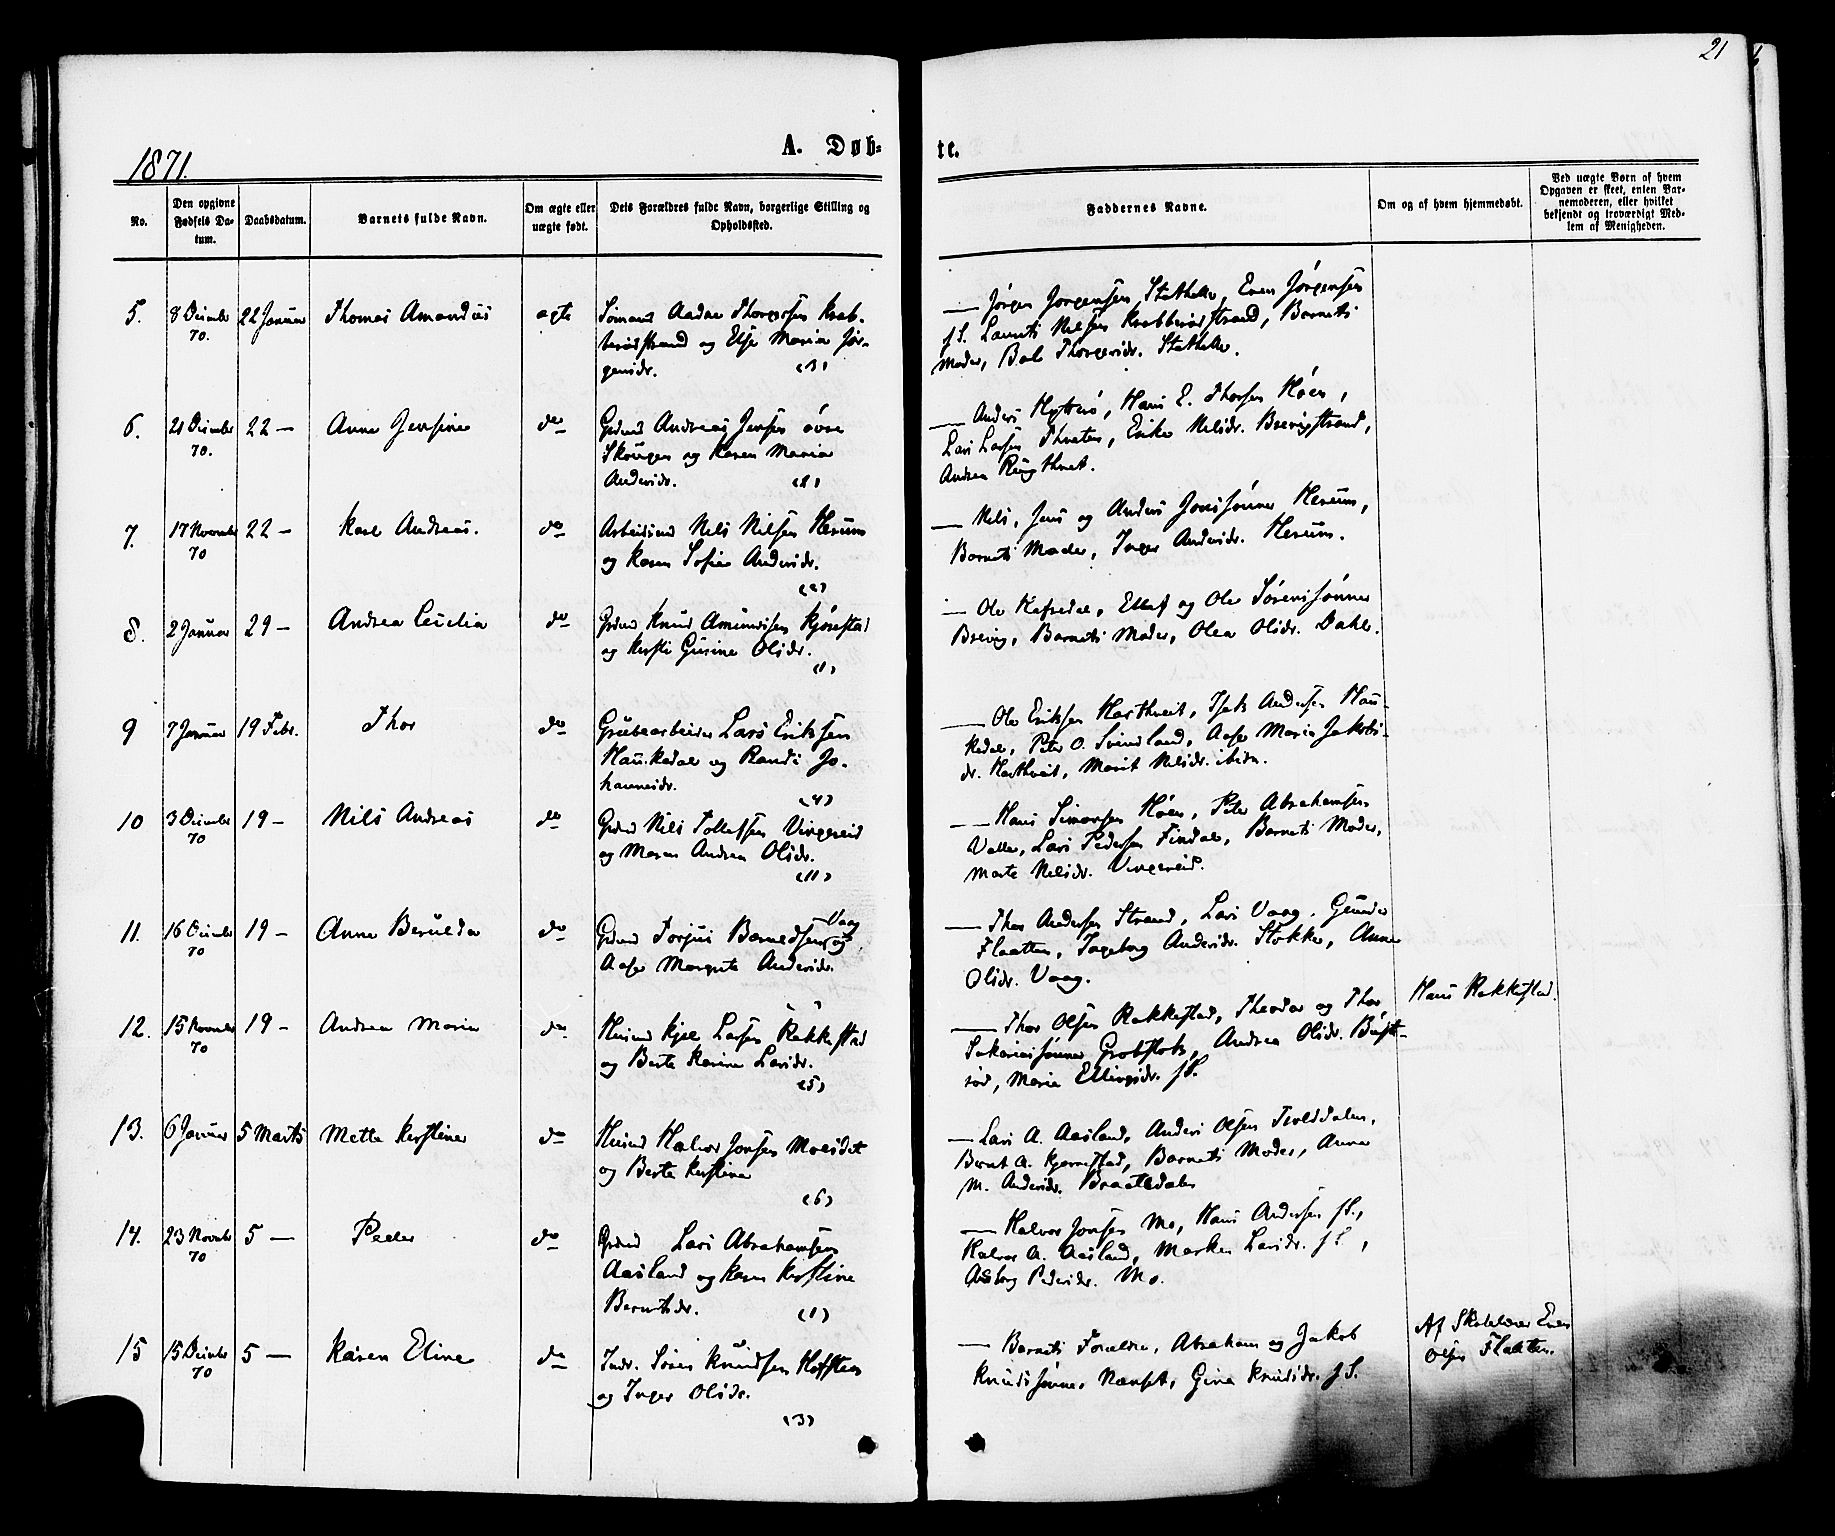 21
1871.
A. Døb-
te.
No.
Den opgivne
Fødsels Da-
tum.
Daabsdatum.
Barnets fulde Navn.
Om ægte eller
uægte født.
Dets Forældres fulde Navn, borgerlige Stilling og
Opholdssted.
Faddernes Navne.
Om og af hvem hjemmedøbt.
Ved uægte Børn af hvem
Opgaven er skeet, enten Bar-
nemoderen, eller hvilket
bekjendt og troværdigt Med-
lem af Menigheden.
5.
8 December
70.
22 Januar
Thomas Amandus
ægte
Sømand Aadne Thorgersen Krab-
berødstrand og Else Maria Jør-
gensdr.
(3)
— Jørgen Jørgensen Stathelle, Even Jørgensen
f S. Laurits Nilsen Krabberødstrand, Barnets
Moder, Thorgersdr. Stathelle.
6.
21 December
70.
22 —
Anne Jensine
do
Grdmd Andreas Jensen øvre
Skougen og Karen Maria
Andersdr.
(2)
— Anders Hytterø, Hans E. Thorsen Høen,
Lars Larsen Thveten, Nilsdr. Brevigstrand,
Andrea
7.
17 November
70
22 —
Karl Andreas.
do
Arbeidsmd Nils Nilsen Herum
og Karen Sofie Andersdr.
(2)
— Nils, Jens og Anders Jonssønner Herum,
Barnets Moder, Inger Andersdr. Herum.
8.
2 Januar
29 —
Andrea Cecilia
do
Grdmd Knud Amundsen Kjørestad
og Kersti Gurine Olsdr.
(1)
— Ole Hafredal, Ellef og Ole Sørenssønner
Brevig, Barnets Moder, Olea Olsdr. Dahle.
9
7 Januar
19 Febr.
Thor
do
Grubearbeider Lars Eriksen
Haukedal og Randi Jo-
hannesdr.
(4)
— Ole Eriksen Hegthveit, Isak Andersen Hau-
kedal, Peter O. Svindland, Aase Maria Jakobs-
dr. Marit Nilsdr. ibidm.
10
3 December
70
19 —
Nils Andreas
do
Grdmd Nils Tollefsen Vingereid
og Maren Andrea Olsdr.
(11)
— Hans Simonsen Høen, Peter Abrahamsen
Valle, Lars Pedersen Findal, Barnets Moder,
Marte Nilsdr. Vingereid.
11.
16 December
70
19 —
Anne Berulda
do
Grdmd Torjus Beruldsen Vaag
og
Aase Margrete Andersdr.
— Thor Andersen Strand, Lars Vaag, Gunder
Flaatten, Ingeborg Andersdr. Stokke, Anne
Olsdr. Vaag.
12.
15 November
70
19 —
Andrea Maria
do
Husmd Kjel Larsen Rakkestad
og Berte Karine Larsdr.
(5)
— Thor Olsen Rakkestad, Theodor og Thor
Sakariassønner Grobstok, Andrea Olsdr.
Maria Ellingsdr. f S.
Hans Rakkestad.
13.
6 Januar
5 Marts
Mette Kerstine
do
Husmd Halvor Jonsen
og Berte Kerstine
(6)
— Lars A. Aasland, Anders Olsen Tvedtdalen,
Bernt A. Kjørrestad, Barnets Moder, Anne
M. Andersdr. Braatedalen
14.
23 November
70
5 —
Peder
do
Grdmd Lars Abrahamsen
Aasland og Karen Kerstine
Berntsdr.
(1)
— Halvor Jonsen Mo, Hans Andersen f S.,
Halvor A. Aasland, Marken Larsdr. f S.,
Aasborg Pedersdr. Mo.
15
15 December
70
5 —
Karen Eline
do
Indr. Søren Knudsen Hafsten
og Inger Olsdr.
(3)
— Barnets Forældre, Abraham og Jakob
Knudssønner Nenset, Gina Knudsdr. f S.
Af Skolelærer Even
Olsen Flaatten.